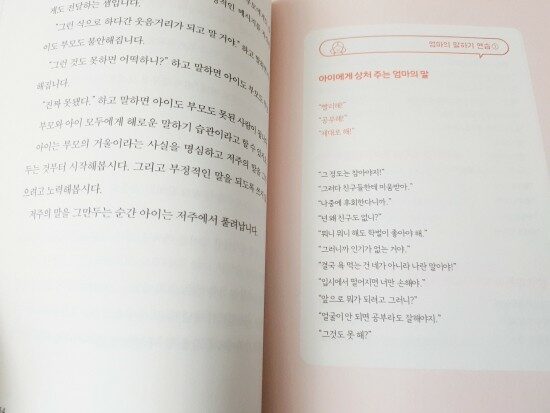 게도 전달하는 셈입니다.
"그런 식으로 하다간 웃음거리가 되고 말 거야." 하고
이도 부모도 불안해집니다.
"그런 것도 못하면 어떡하니?" 하고 말하면 아이도 부모도
해집니다.
"진짜 못됐다." 하고 말하면 아이도 부모도 못된 사람이
부모와 아이 모두에게 해로운 말하기 습관이라고 할 수
아이는 부모의 거울이라는 사실을 명심하고 저주의 말을
두는 것부터 시작해봅시다. 그리고 부정적인 말을 되도록
으려고 노력해봅시다.
저주의 말을 그만두는 순간 아이는 저주에서 풀려납니다.
엄마의 말하기 연습 ①
아이에게 상처 주는 엄마의 말
"빨리해!"
"공부해!"
"제대로 해!"
"그 정도는 참아야지!"
"그러다 친구들한테 미움받아."
"나중에 후회한다니까."
"넌 왜 친구도 없니?"
"뭐니 뭐니 해도 학벌이 좋아야 해."
"그러니까 인기가 없는 거야."
"결국 욕 먹는 건 네가 아니라 나란 말이야!"
"입시에서 떨어지면 너만 손해야."
"앞으로 뭐가 되려고 그러니?"
"얼굴이 안 되면 공부라도 잘해야지."
"그것도 못 해?"